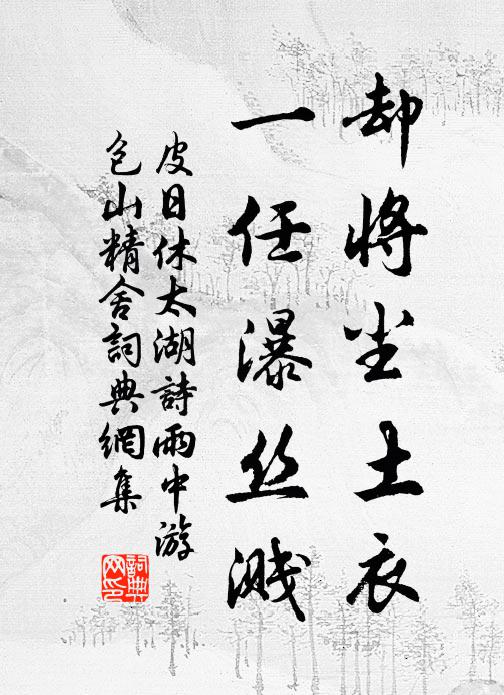 却将尘土衣
一任瀑丝溅
皮日休太湖詩雨中游
包山精舍詞典網集
詞典网印